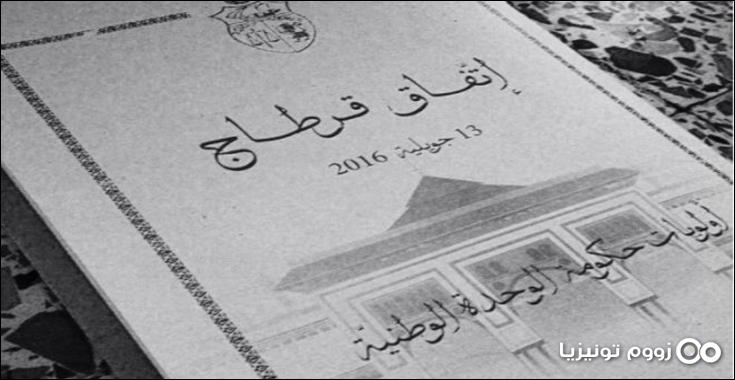 إتّفاق قرطاج
13 جويلية 2016
أولويات حكومة الوحدة الوطنية
زووم تونيزيا